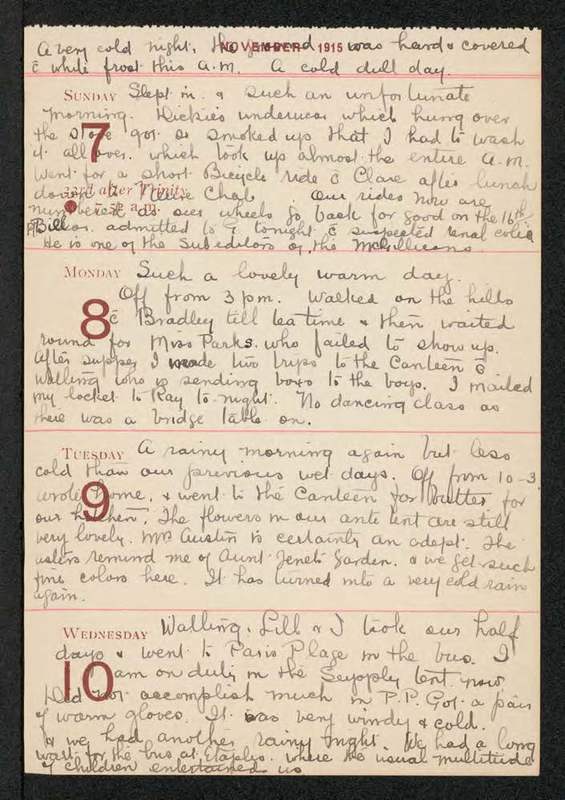 NOVEMBER 1915
A very cold night. The ground was hard & covered
c̄ white frost this A.M. A cold dull day.
SUNDAY Slept in. & such an unfortunate
7 morning. Dickie's underwear which hung over
the stove got so smoked up that I had to wash
it all over. which took up almost the entire A.M.
Went for a short Bicycle ride c̄ Clare after lunch
23rd after Trinity
down to Neuve Chap Our rides now are
7.52 a.m.
numbered as our wheels go back for good on the 16th.
admitted to tonight c̄ suspected renal colic
He is one of the Sub editors of the McGillicans
MONDAY Such a lovely warm day.
8 Off from 3 pm. Walked on the hills
c̄ Bradley till tea time & then waited
round for Miss Parks. who failed to show up.
After supper I made two trips to the Canteen c̄
Walling who is sending boxs to the boys. I mailed
my locket to Kay to night. No dancing class as
there was a bridge table on.
TUESDAY A rainy morning again but less
cold than our previous wet days. Off from 10-3
9 wrote home. & went to the Canteen for butter for
our kitchen. The flowers in our ante tent are still
very lovely. Mrs Austin is certainly an adept. The
asters remind me of Aunt Jenets Garden. & we get such
fine colors here. It has turned into a very cold rain
again.
WEDNESDAY Walling. Lill & I took our half
days & went to Paris Plage in the bus. I
10 am on duty in the tent now
Did not accomplish much in P.P. Got a pair
of warm gloves. It was very windy & cold.
& we had another rainy night. We had a long
wait for the bus at Etaples. where the usual multitude
of children entertained us